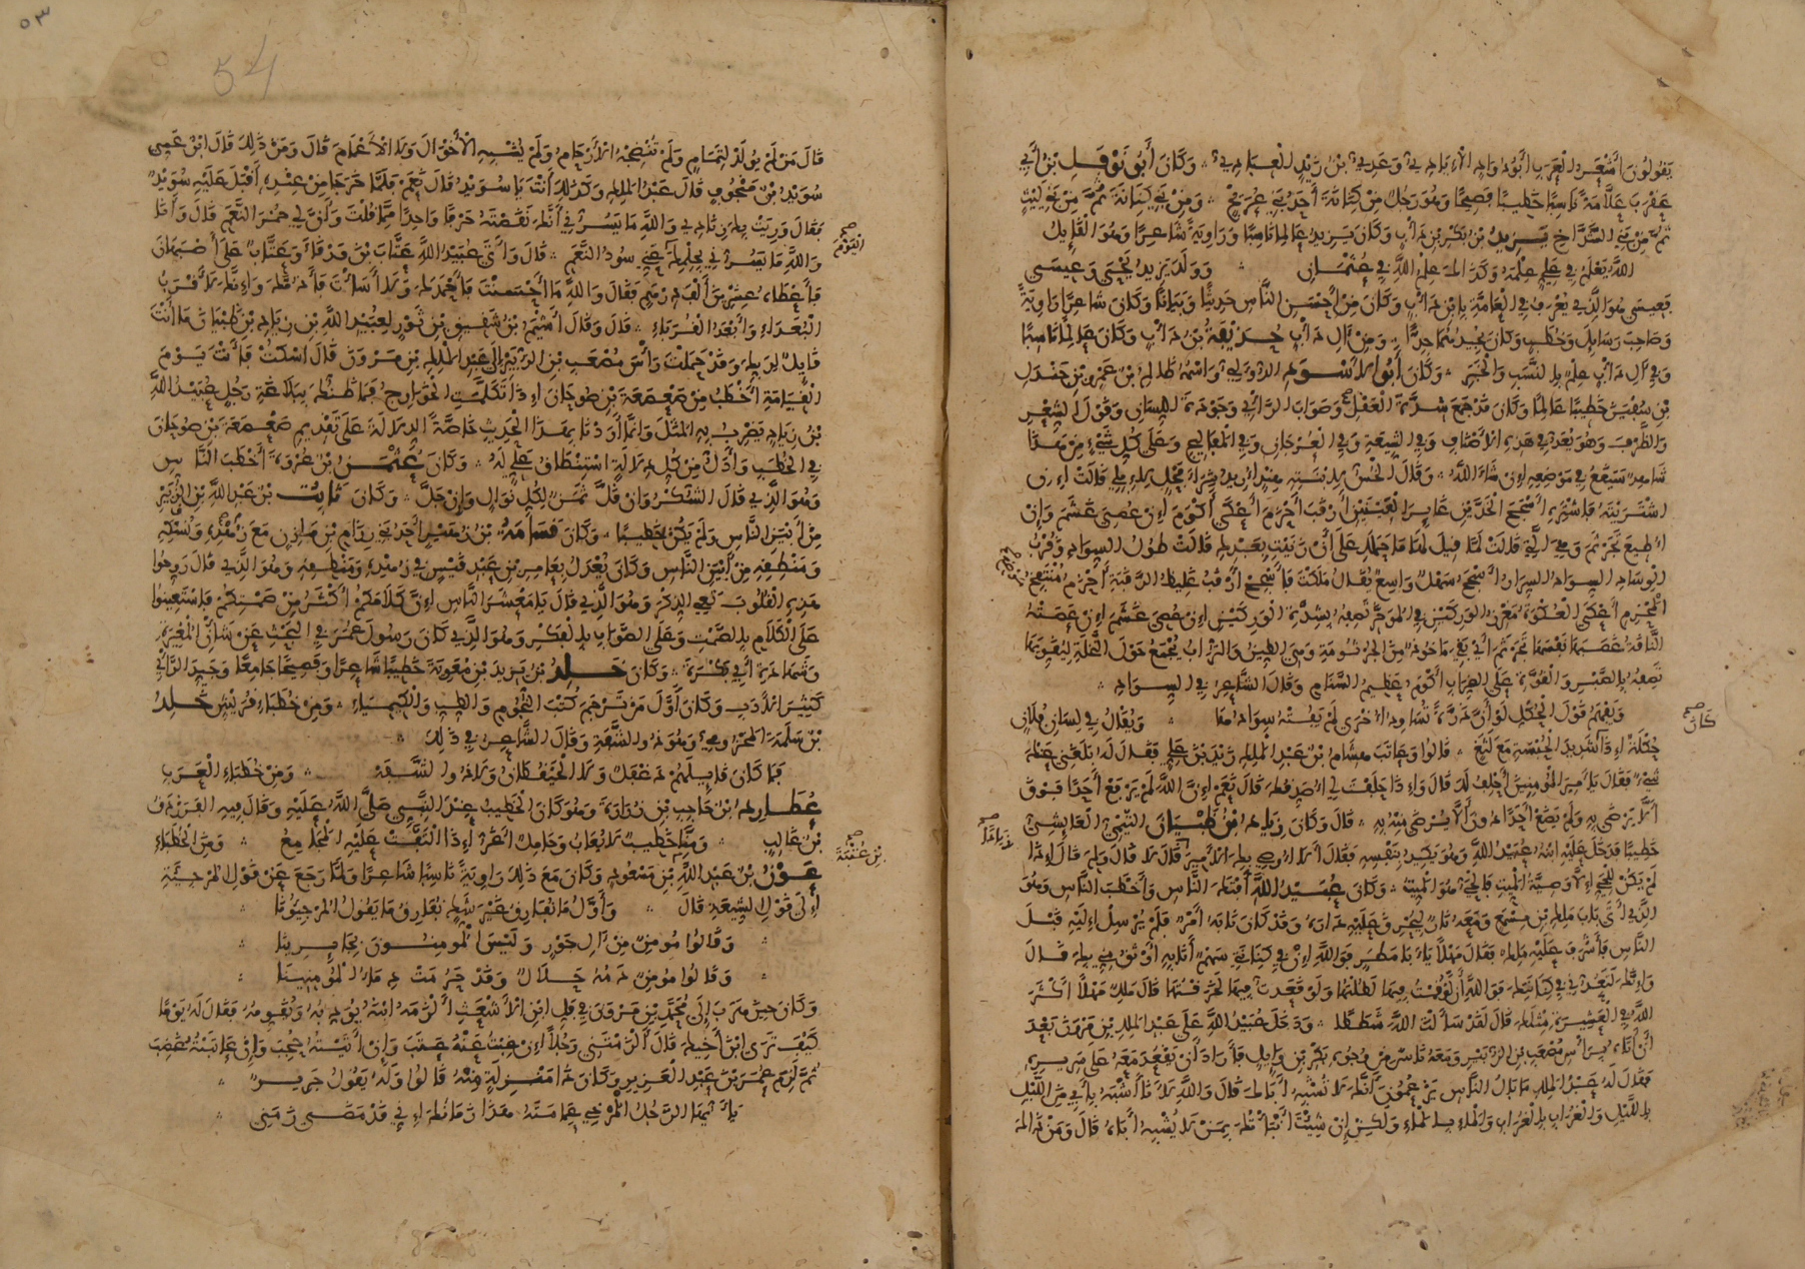 يقولون أشعر العرب أبو دواد الإيادي وعدي بن زيد العبادي وكان أبو نوفل بن أبي
عقرب علامة ناسبا خطيبا فصيحا وهو رجل من كنانة أحد بني عريج ومن بني كنانة ثم من بني ليث
ثم من بني الشداخ يزيد بن بكر بن دأب وكان يزيد عالما ناسبا وراوية شاعرا وهو القايل
الله يعلم في علي علمه وكذاك علم الله في عثمان وولد يزيد يحيى وعيسى
فعيسى هو الذي يعرف في العامة بابن دأب وكان من أحسن الناس حديثا وبيانا وكان شاعرا راوية
وصاحب رسايل وخطب وكان يجيدهما جدا ومن آل دأب حذيفة بن دأب وكان عالما ناسبا
وفي آل دأب علم بالنسب والخبر وكان أبو الأسود الدؤلي واسمه ظالم بن عمرو بن جندل
بن سفين خطيبا عالما وكان قد جمع شدة العقل وصواب الرأي وجودة اللسان وقول الشعر
والظرف وهو يعد في هذه الأصناف وفي الشيعة وفي العرجان وفي المفاليج وعلى كل شيء من هذا
شاهد سيقع في موضعه إن شاء الله وقال الخس لابنته هند أريد شراء فحل لإبلي قالت إن
اشتريته فاشتره أسجح الخدين غاير العينين أرقب أحزم أعكى أكوم إن عصي غشم وإن
أطيع تجرثم وهي التي قالت لما قيل لها ما حملك على أن زنيت بعبدك قالت طول السواد وقرب
الوساد السواد السرار أسجح سهل واسع يقال ملكت فأسجح أرقب غليظ الرقبة أحزم منتفخ
المحزم أعكى العكوة مغرز الوركين في المؤخر تصفه بشدة الوركين إن عصي غشم إن عصته
الناقة غصبها نفسها تجرثم أي بقي مأخوذ من الجرثومة وهي الطين والتراب يجمع حول النخلة ليقويها
تصفه بالصبر والقوة على الضراب أكوم عظيم السنام وقال الشاعر في السواد
ويفهم قول الحكل لو أن ذرة تساود أخرى لم يفته سوادها ويقال في لسان فلان
حكلة إذا كان شديد الحبسة مع لثغ قالوا وعاتب هشام بن عبد الملك زيد بن علي فقال له بلغني عنك
شيء فقال يا أمير المؤمنين أحلف لك قال وإذا حلفت لي أصدقك قال نعم إن الله لم يرفع أحدا فوق
ألا يرضى به ولم يضع أحدا دون ألا يرضى منه به قال وكان زياد بن ظبيان التيمي العايشي
خطيبا فدخل عليه ابنه عبيد الله وهو يكيد بنفسه فقال ألا أوصي بك الأمير قال لا قال ولم قال إذا
لم يكن للحي إلا وصية الميت فالحي هو الميت وكان عبيد الله أفتك الناس وأخطب الناس وهو
الذي أتى باب ملك بن مسمع ومعه نار ليحرق عليه داره وقد كان نابه أمر فلم يرسل إليه قبل
الناس فأشرف عليه ملك فقال مهلا يا أبا مطر فوالله إن في كنانتي سهم أنا به أوثق مني بك قال
وإنك لتعدني في كنانتك فوالله أن لو قمت فيها لطلتها ولو قعدت فيها لخرقتها قال ملك مهلا أكثر
الله في العشيرة مثلك قال لقد سألت الله شططا ودخل عبيد الله على عبد الملك بن مرون بعد
أن أتاه برأس مصعب بن الزبير ومعه ناس من وجوه بكر بن وايل فأراد أن يقعد معه على سريره
فقال له عبد الملك ما بال الناس يزعمون أنك لا تشبه أباك قال والله لأنا أشبه بأبي من الليل
بالليل والغراب بالغراب والماء بالماء ولكن إن شئت أنبأتك بمن لا يشبه أباه قال ومن ذاك
قال من لم يولد لتمام ولم تنضجه الأرحام ولم يشبه الأخوال ولا الأعمام قال ومن ذلك قال ابن عمي
سويد بن منجوف قال عبد الملك وكذلك أنت يا سويد قال نعم فلما خرجا من عنده أقبل عليه سويد
فقال وريت بك زنادي والله ما يسرني أنك نقصته حرفا واحدا مما قلت وأن لي حمر النعم قال وأنا
والله ما يسرني بحلمك عني سود النعم قال وأتى عبيد الله عتاب بن ورقاء وعتاب على أصبهان
فأعطاه عشرين ألف درهم فقال والله ما أحسنت فأحمدك ولا أسأت فأذمك وإنك لأقرب
البعداء وأبعد القرباء قال وقال أشيم بن شقيق بن ثور لعبيد الله بن زياد بن ظبيان ما أنت
قايل لربك وقد حملت رأس مصعب بن الزبير إلى عبد الملك بن مرون قال اسكت فأنت يوم
القيامة أخطب من صعصعة بن صوحان إذا تكلمت الخوارج فما ظنك ببلاغة رجل عبيد الله
بن زياد يضرب به المثل وإنما أردنا بهذا الحديث خاصة الدلالة على تقديم صعصعة بن صوحان
في الخطب وأدل من كل دلالة استنطاق علي له وكان عثمن بن عروة أخطب الناس
وهو الذي قال الشكر وإن قل ثمن لكل نوال وإن جل وكان ثابت بن عبد الله بن الزبير
من أبين الناس ولم يكن خطيبا وكان قسامة بن زهير أحد بني رزام بن مازن مع زهده ونسكه
ومنطقه من أبين الناس وكان يعدل بعامر بن عبد قيس في زهده ومنطقه وهو الذي قال روحوا
هذه القلوب تعي الذكر وهو الذي قال يا معشر الناس إن كلامكم أكثر من صمتكم فاستعينوا
على الكلام بالصمت وعلى الصواب بالفكر وهو الذي كان رسول عمر في البحث عن شأن المغيرة
وشهادة أبي بكرة وكان خلد بن يزيد بن معوية خطيبا شاعرا وفصيحا جامعا وجيد الرأي
كثير الأدب وكان أول من ترجم كتب النجوم والطب والكيمياء ومن خطباء قريش خلد
بن سلمة المخزومي وهو ذو الشفة وقال الشاعر في ذلك
فما كان قايلهم دغفل ولا الحيقطان ولا ذو الشفه ومن خطباء العرب
عطارد بن حاجب بن زرارة وهو كان الخطيب عند النبي صلى الله عليه وقال فيه الفرزدق
بن غالب ومنا خطيب لا يعاب وحامل أغر إذا التفت عليه المجامع ومن الخطباء
عون بن عبد الله بن مسعود وكان مع ذلك راوية ناسبا شاعرا ولما رجع عن قول المرجئة
إلى قول الشيعة قال وأول ما نفارق غير شك نفارق ما يقول المرجيونا
وقالوا مومن من آل جور وليس المومنون بجايرينا
وقالوا مومن دمه حلال وقد حرمت دماء المومنينا
وكان حين هرب إلى محمد بن مروان في فل ابن الأشعث ألزمه ابنه يودبه ويقومه فقال له يوما
كيف ترى ابن أخيك قال ألزمتني رجلا إن غبت عنه عتب وإن أتيته حجب وإن عاتبته غضب
ثم لزم عمر بن عبد العزيز وكان ذا منزلة منه قالوا وله يقول جرير
يا أيها الرجل المرخي عمامته هذا زمانك إني قد مضى زمني
بن عتبة
كان
54
٥٣